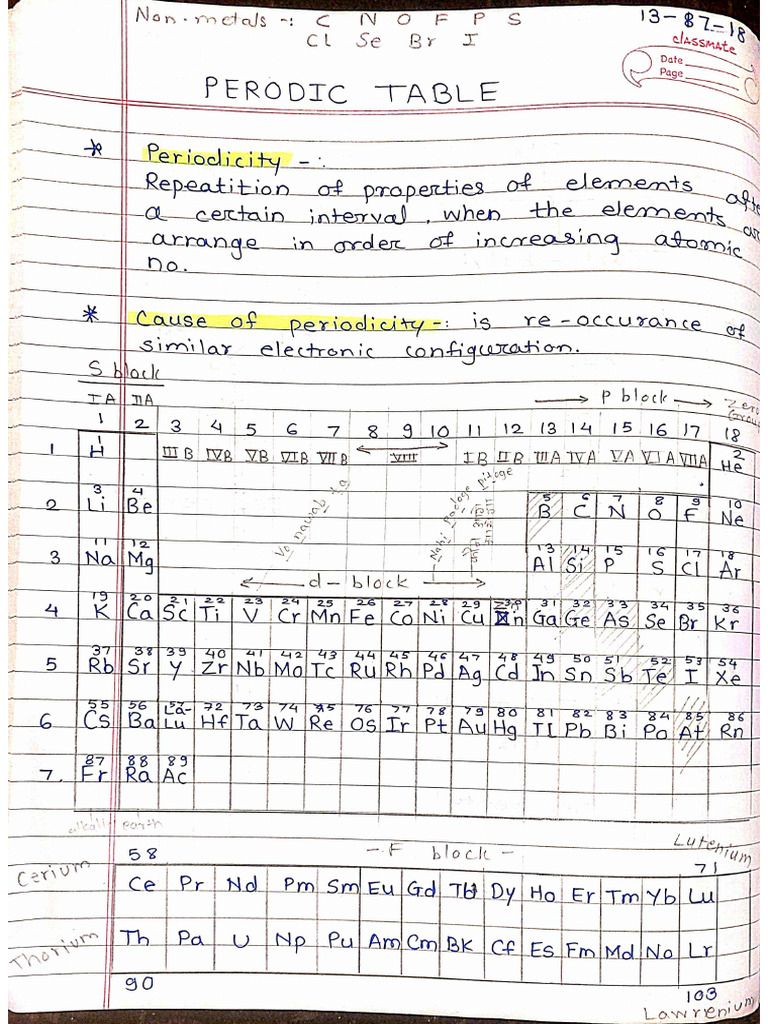 Non-metals -: C N O F P S
Cl Se Br I
13-82-18
classmate
Date
Page
PERODIC TABLE
* Periodicity -:
Repeatition of properties of elements afte
a certain interval, when the elements are
arrange in order of increasing atomic
no.
* Cause of periodicity -: is re-occurance of
similar electronic configuration.
S block
IA IIA
P block
Zero Group
1 2 3 4 5 6 7 8 9 10 11 12 13 14 15 16 17 18
III B IV B V B VI B VII B VIII I B II B III A IV A V A VI A VII A
1 H 1 He 2
2 Li 3 Be 4 B 5 C 6 N 7 O 8 F 9 Ne 10
Vo nawab
3 Na 11 Mg 12 Al 13 Si 14 P 15 S 16 Cl 17 Ar 18
d-block
19 20 21 22 23 24 25 26 27 28 29 30 31 32 33 34 35 36
4 K Ca Sc Ti V Cr Mn Fe Co Ni Cu Zn Ga Ge As Se Br Kr
37 38 39 40 41 42 43 44 45 46 47 48 49 50 51 52 53 54
5 Rb Sr Y Zr Nb Mo Tc Ru Rh Pd Ag Cd In Sn Sb Te I Xe
55 56 72 73 74 75 76 77 78 79 80 81 82 83 84 85 86
6 Cs Ba La- Lu Hf Ta W Re Os Ir Pt Au Hg Tl Pb Bi Po At Rn
87 88 89
7. Fr Ra Ac
alkali earth
Lutenium
58 - F block - 71
Cerium
Ce Pr Nd Pm Sm Eu Gd Tb Dy Ho Er Tm Yb Lu
Thorium
Th Pa U Np Pu Am Cm BK Cf Es Fm Md No Lr
90 103
Lawrenium